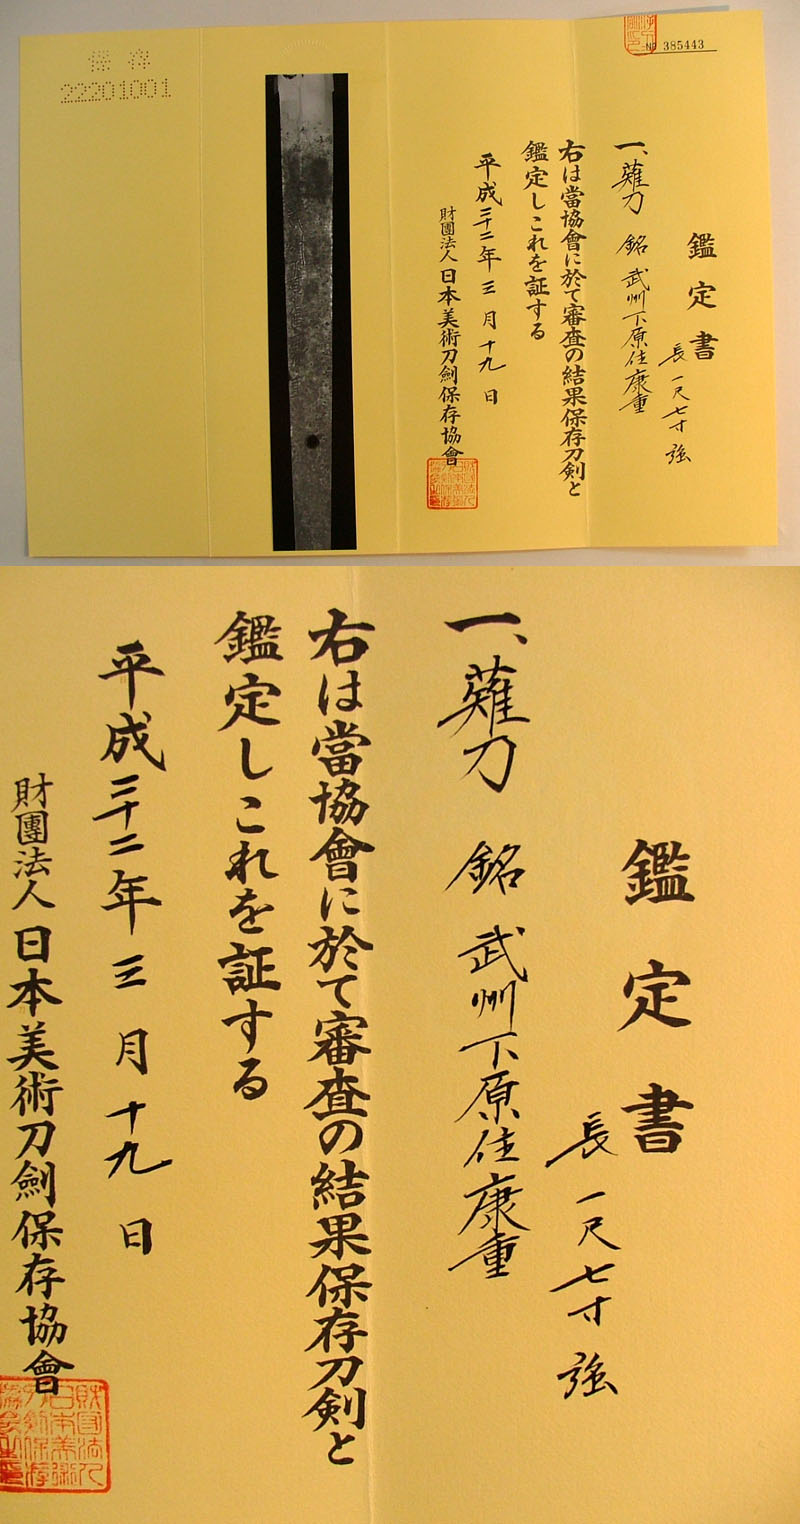 保存
22201001
№ 385443
鑑定書
一、薙刀 銘 武州下原住康重
長 一尺七寸強
右は當協會に於て審査の結果保存刀剣と
鑑定しこれを証する
平成二十二年三月十九日
財團法人日本美術刀劍保存協會
鑑定書
一、薙刀 銘 武州下原住康重
長 一尺七寸強
右は當協會に於て審査の結果保存刀剣と
鑑定しこれを証する
平成二十二年三月十九日
財團法人日本美術刀劍保存協會